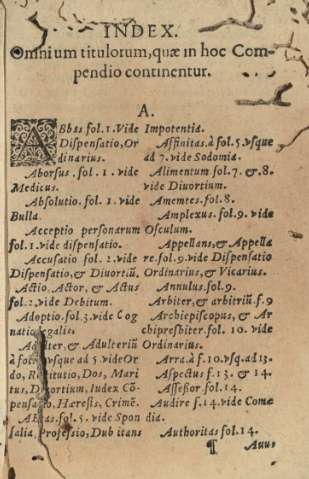 INDEX.
Omnium titulorum, quæ in hoc Com-
pendio continentur.
A.
ABbas fol. 1. Vide Impotentia.
Dispensatio, Or
dinarius.
Aborsus. fol. 1. vide
Medicus.
Absolutio. fol. 1. vide
Bulla.
Acceptio personarum
fol. 1. vide dispensatio.
Accusatio fol. 2. vide
Dispensatio, & Diuortiũ,
Actio, Actor, & Actus
fol. 2. vide Debitum.
Adoptio. fol. 3. vide Cog
natio legalis.
& Adulteriũ
vsque ad 5. vide Or
do, Dos, Mari
tus, Iudex Cõ
Hæresis, Crimẽ.
fol. 5. vide Spon
salia, Professio, Dubitans
Affinitas. à fol. 5. vsque
ad 7. vide Sodomia.
Alimentum fol. 7. & 8.
vide Diuortium.
Amentes. fol. 8.
Amplexus. fol. 9. vide
Osculum.
Appellans, & Appella
re. fol. 9. vide Dispensatio
Ordinarius, & Vicarius.
Annulus. fol. 9.
Arbiter, & arbitriũ f. 9
Archiepiscopus, & Ar
chipresbiter. fol. 10. vide
Ordinarius.
Arra. à f. 10. vsq. ad 13.
Aspectus f. 13. & 14.
Assessor fol. 14.
Audire f. 14. vide Comæ
dia.
Authoritas fol. 14.
¶ Auus